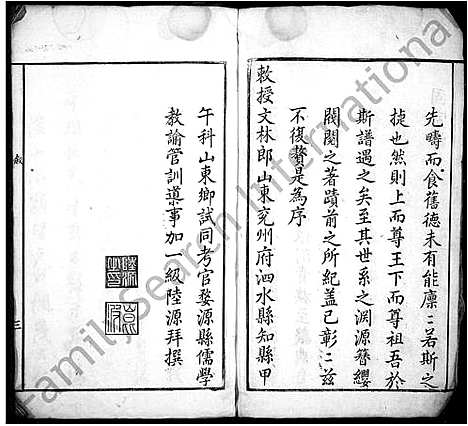 先疇而食舊德未有能廩〻若斯之
捷也然則上而尊王下而尊祖吾於
斯譜遇之矣至其世系之淵源簪纓
閥閱之著蹟前之所紀盖已彰〻茲
不復贅是為序
敕授文林郎山東兖州府泗水縣知縣甲
午科山東鄉試同考官婺源縣儒學
教諭管訓導事加一級陸源拜撰
三
FamilySearch International